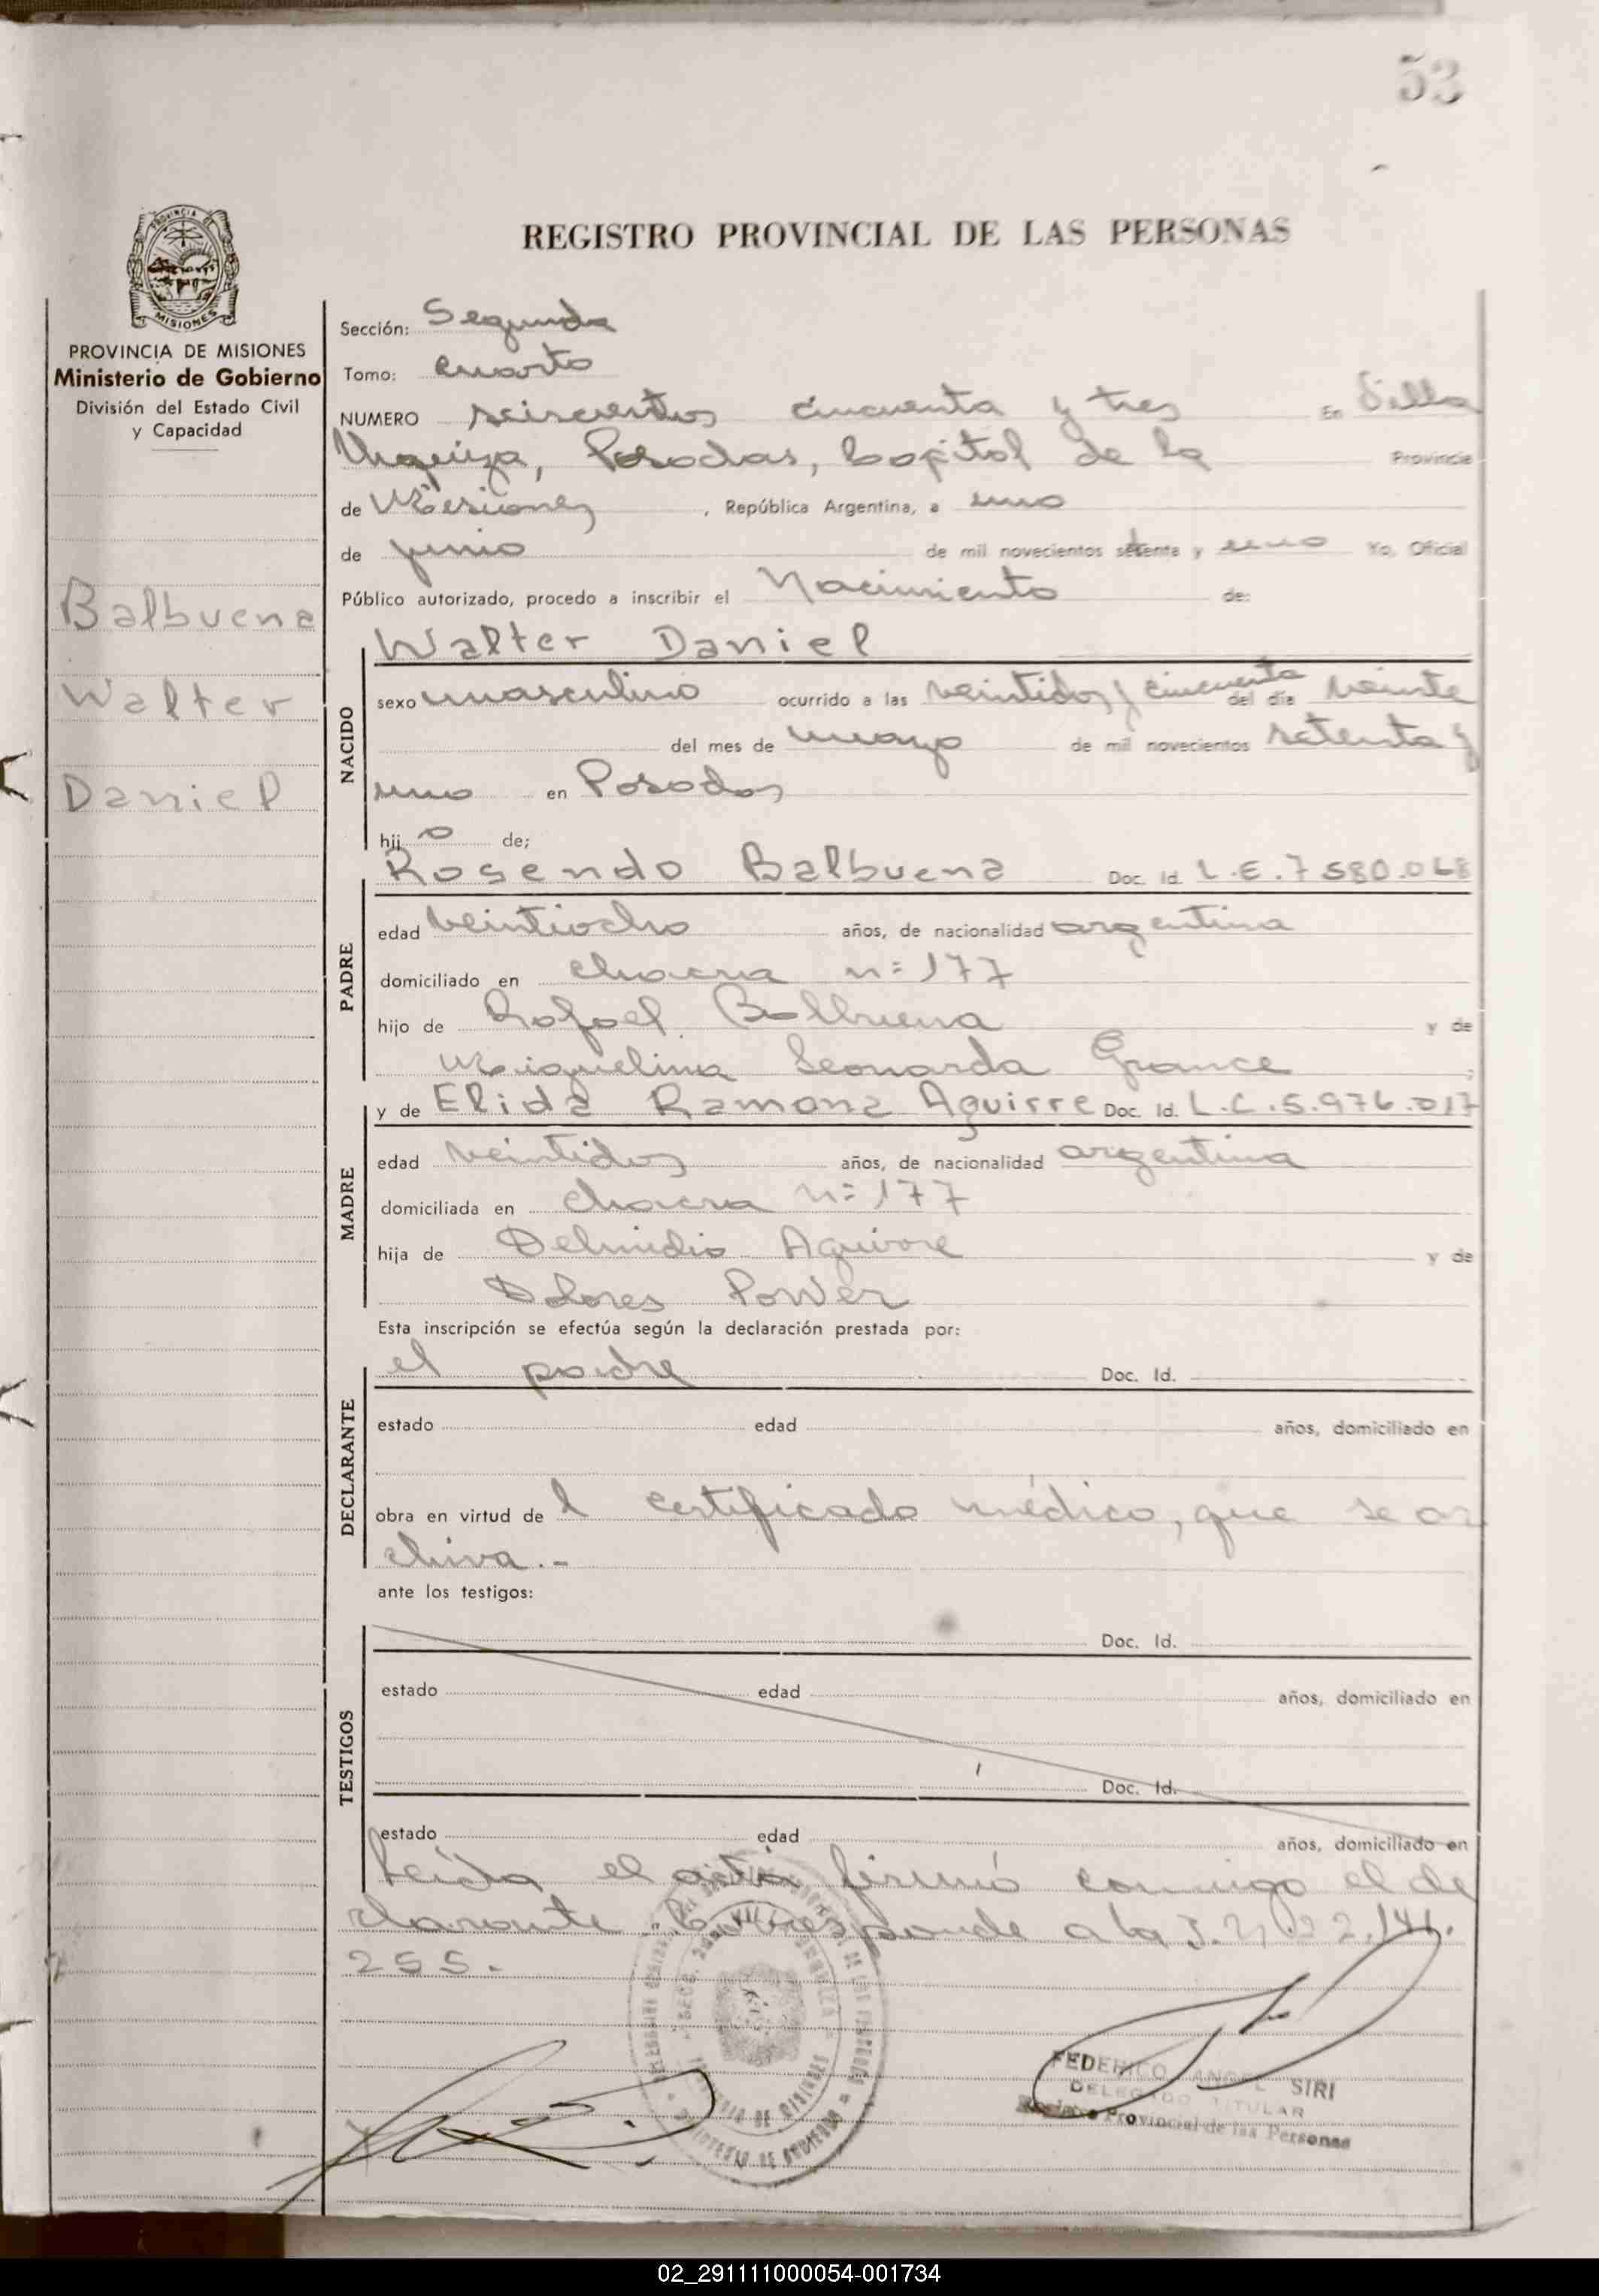 53
REGISTRO PROVINCIAL DE LAS PERSONAS
PROVINCIA DE MISIONES
Ministerio de Gobierno
División del Estado Civil
y Capacidad
Balbuena
Walter
Daniel
Sección: Segunda
Tomo: cuarto
NUMERO seiscientos cincuenta y tres En Villa
Urquiza, Posadas, Capital de la Provincia
de Misiones, República Argentina, a uno
de junio de mil novecientos setenta y uno Yo, Oficial
Público autorizado, procedo a inscribir el Nacimiento de:
NACIDO
Walter Daniel
sexo masculino ocurrido a las veintidos y cincuenta del día veinte
del mes de mayo de mil novecientos setenta y
uno en Posadas
hijo de;
PADRE
Rosendo Balbuena Doc. Id. L.E. 7580.068
edad veintiocho años, de nacionalidad argentina
domiciliado en chacra n° 177
hijo de Rafael Balbuena y de
Miguelina Leonarda Grance ;
MADRE
y de Elida Ramona Aguirre Doc. Id. L.C. 5.976.017
edad veintidos años, de nacionalidad argentina
domiciliada en chacra n° 177
hija de Delmidio Aguirre y de
Dolores Power
Esta inscripción se efectúa según la declaración prestada por:
DECLARANTE
el padre Doc. Id.
estado edad años, domiciliado en
obra en virtud del certificado médico, que se ar
chiva.-
ante los testigos:
TESTIGOS
Doc. Id.
estado edad años, domiciliado en
Doc. Id.
estado edad años, domiciliado en
Leída el acta firmó conmigo el de
clarante. Corresponde a la
255.
FEDERICO ANGEL SIRI
DELEGADO TITULAR
Registro Provincial de las Personas
02_291111000054-001734